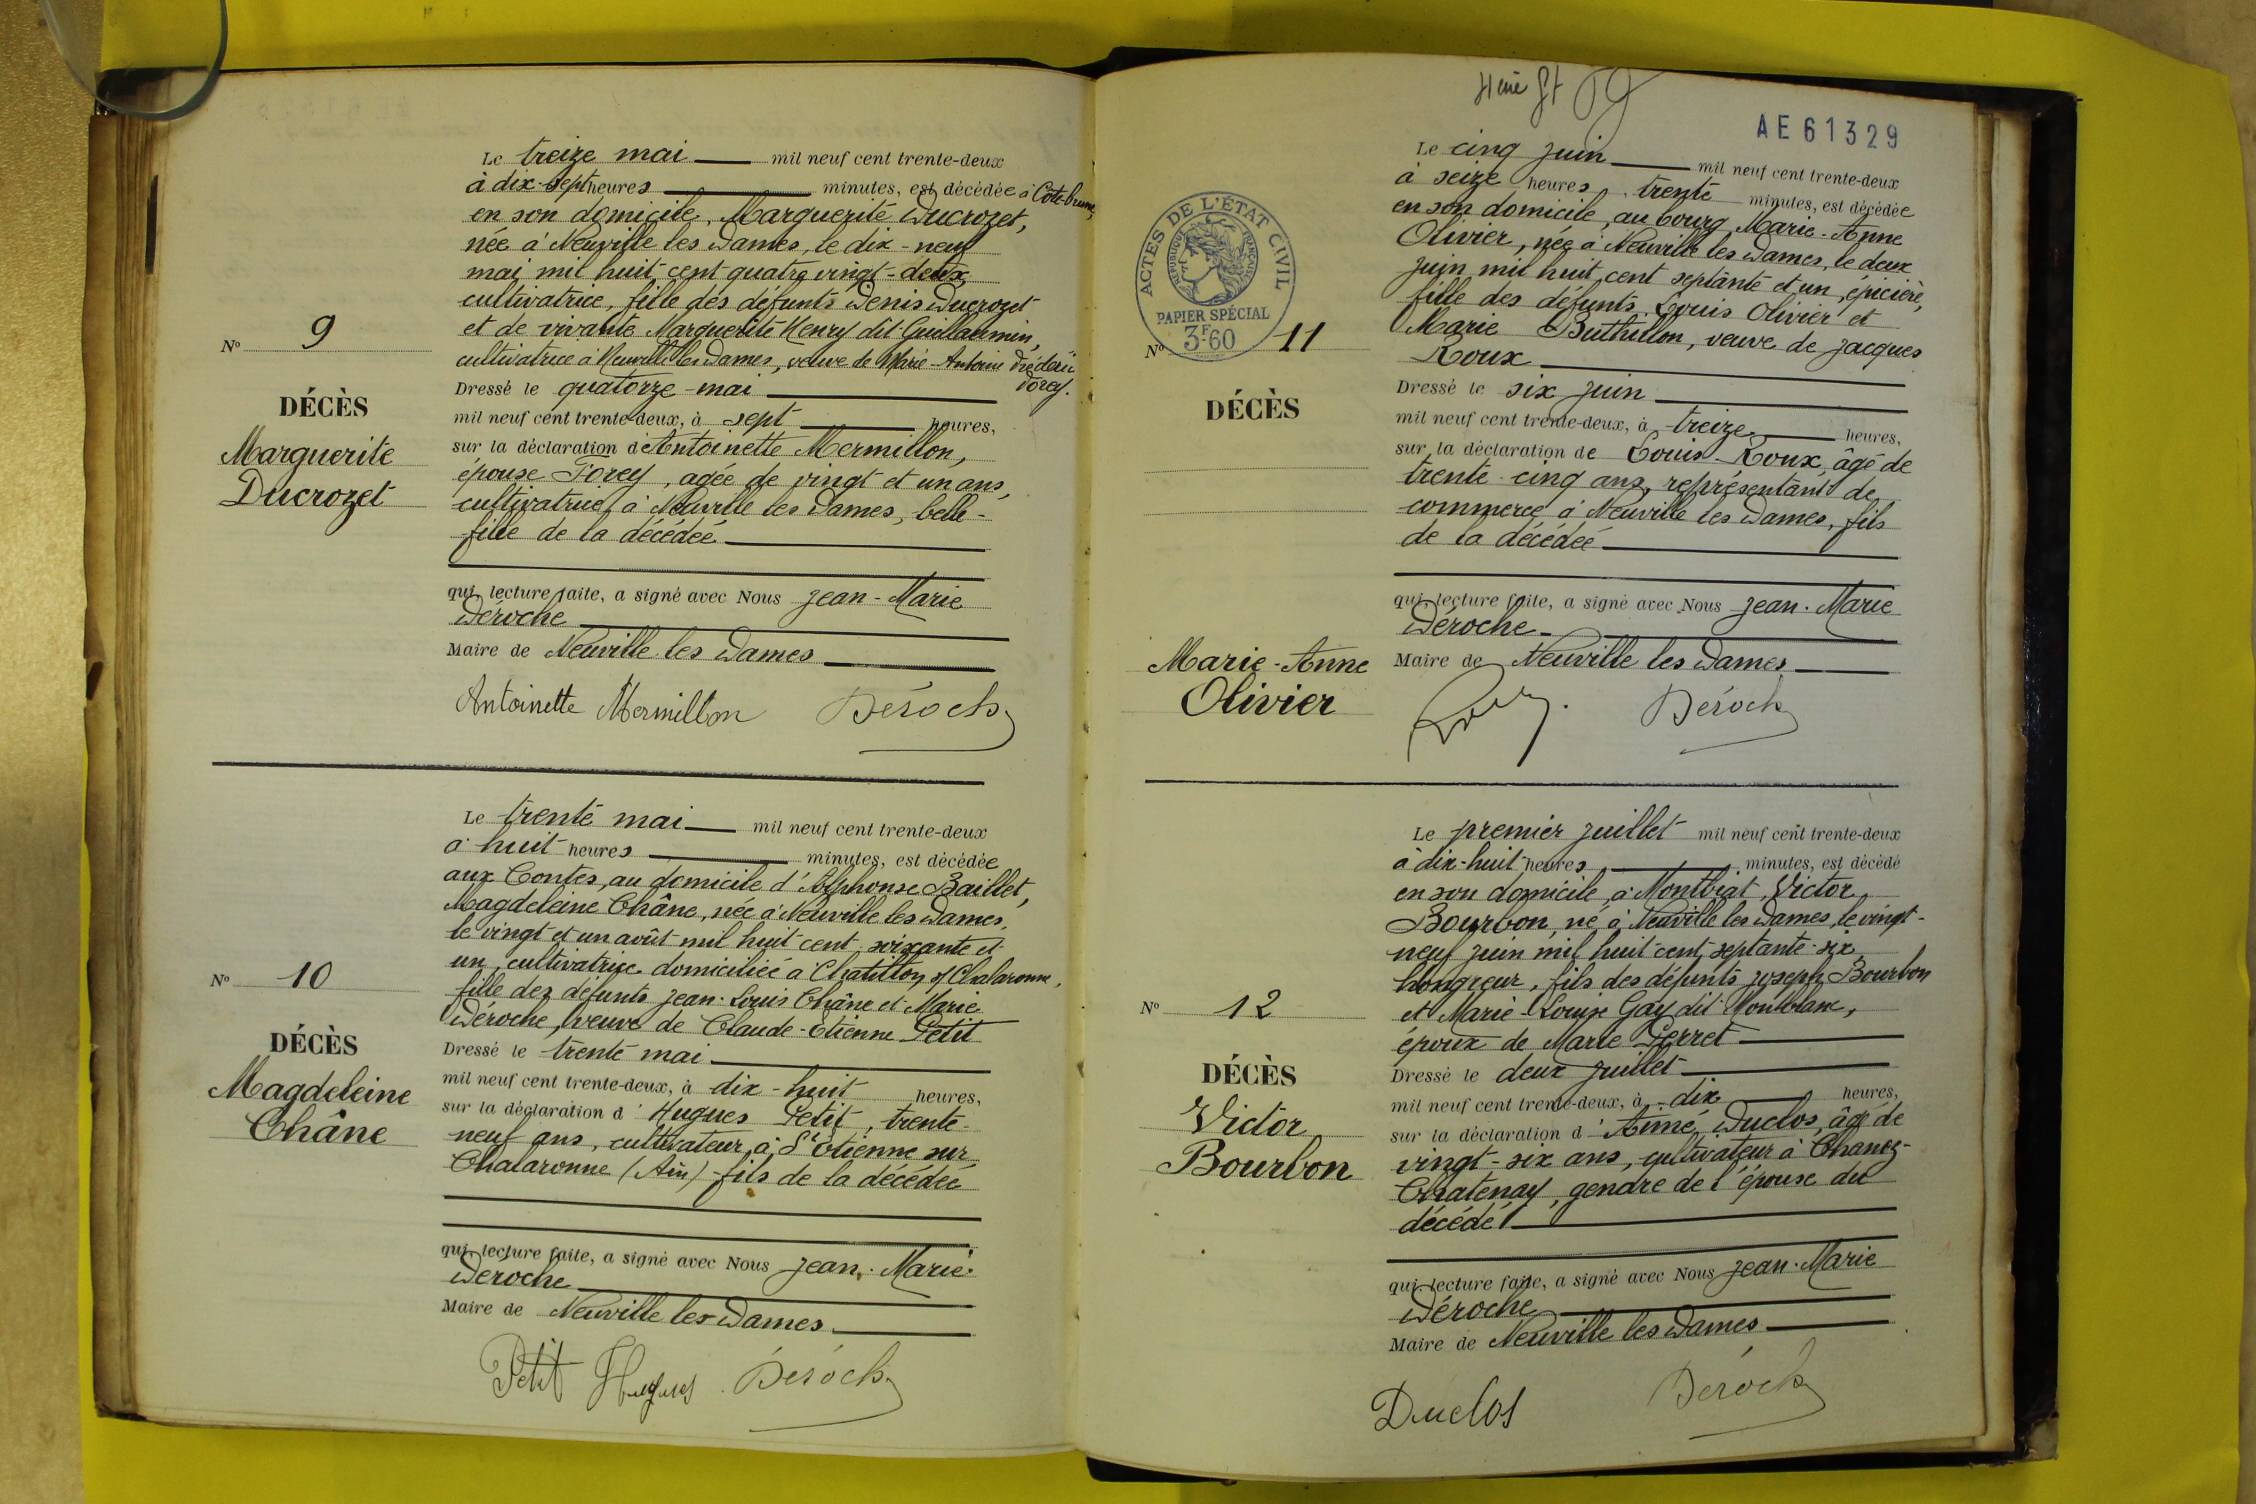 Le treize mai mil neuf cent trente-deux
à dix-sept heures minutes, est décédée à Côte-brune,
en son domicile, Marguerite Ducrozet,
née à Neuville les Dames, le dix-neuf
mai mil huit cent quatre vingt-deux,
cultivatrice, fille des défunts Denis Ducrozet
et de vivante Marguerite Henry dit Guillaumin,
cultivatrice à Neuville les Dames, veuve de Marie-Antoine Frédéric
Forey.
Nº 9
DÉCÈS
Marguerite
Ducrozet
Dressé le quatorze mai
mil neuf cent trente-deux, à sept heures,
sur la déclaration d'Antoinette Mermillon,
épouse Forey, agée de vingt et un ans,
cultivatrice, à Neuville les Dames, belle-
fille de la décédée
qui, lecture faite, a signé avec Nous Jean-Marie
Déroche
Maire de Neuville les Dames
Antoinette Mermillon Déroche
Le trente mai mil neuf cent trente-deux
à huit heures minutes, est décédée
aux Contes, au domicile d'Alphonse Baillet,
Magdeleine Châne, née à Neuville les Dames,
le vingt et un août mil huit cent soixante et
un, cultivatrice domiciliée à Chatillon s/ Chalaronne,
fille des défunts Jean-Louis Châne et Marie
Déroche, veuve de Claude-Etienne Petit
Nº 10
DÉCÈS
Magdeleine
Châne
Dressé le trente mai
mil neuf cent trente-deux, à dix-huit heures,
sur la déclaration d'Hugues Petit, trente-
neuf ans, cultivateur, à St Etienne sur
Chalaronne (Ain) fils de la décédée
qui, lecture faite, a signé avec Nous Jean-Marie
Déroche
Maire de Neuville les Dames
Petit Hugues Déroche
AE61329
Le cinq juin mil neuf cent trente-deux
à seize heures trente minutes, est décédée
en son domicile, au bourg, Marie-Anne
Olivier, née à Neuville les Dames, le deux
juin mil huit cent septante et un, épicière,
fille des défunts Louis Olivier et
Marie Buthillon, veuve de Jacques
Roux
ACTES DE L'ÉTAT CIVIL
RÉPUBLIQUE FRANÇAISE
PAPIER SPÉCIAL
3F60
Nº 11
DÉCÈS
Marie-Anne
Olivier
Dressé le six juin
mil neuf cent trente-deux, à treize heures,
sur la déclaration de Louis Roux, âgé de
trente cinq ans, représentant de
commerce à Neuville les Dames, fils
de la décédée
qui, lecture faite, a signé avec Nous Jean-Marie
Déroche
Maire de Neuville les Dames
Déroche
Le premier juillet mil neuf cent trente-deux
à dix-huit heures minutes, est décédé
en son domicile, à Montbiat, Victor
Bourbon, né à Neuville les Dames, le vingt-
neuf juin mil huit cent septante-six,
hongreur, fils des défunts Joseph Bourbon
et Marie-Louise Gay dit Montblanc,
époux de Marie Perret
Nº 12
DÉCÈS
Victor
Bourbon
Dressé le deux juillet
mil neuf cent trente-deux, à dix heures,
sur la déclaration d'Aimé Duclos, âgé de
vingt-six ans, cultivateur à Chanoz-
Chatenay, gendre de l'épouse du
décédé
qui, lecture faite, a signé avec Nous Jean-Marie
Déroche
Maire de Neuville les Dames
Duclos Déroche